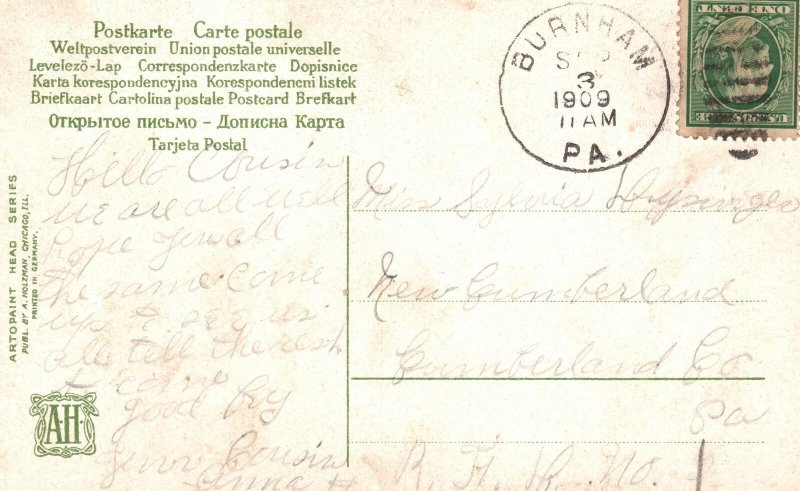 Postkarte Carte postale
Weltpostverein Union postale universelle
Levelező-Lap Correspondenzkarte Dopisnice
Karta korespondencyjna Korespondencni listek
Briefkaart Cartolina postale Postcard Brefkort
Открытое письмо – Дописна Карта
Tarjeta Postal
BURNHAM
SEP
3
1909
11 AM
PA.
ARTOPAINT HEAD SERIES
PUBL. BY A. HOLZMAN, CHICAGO, ILL.
PRINTED IN GERMANY.
Hello Cousin
we are all well
hope you all
the same come
up to see us
all tell the rest
to come
good by
your Cousin
Anna H
A·H·
Miss Sylvia
New Cumberland
Cumberland Co
Pa
No. 1